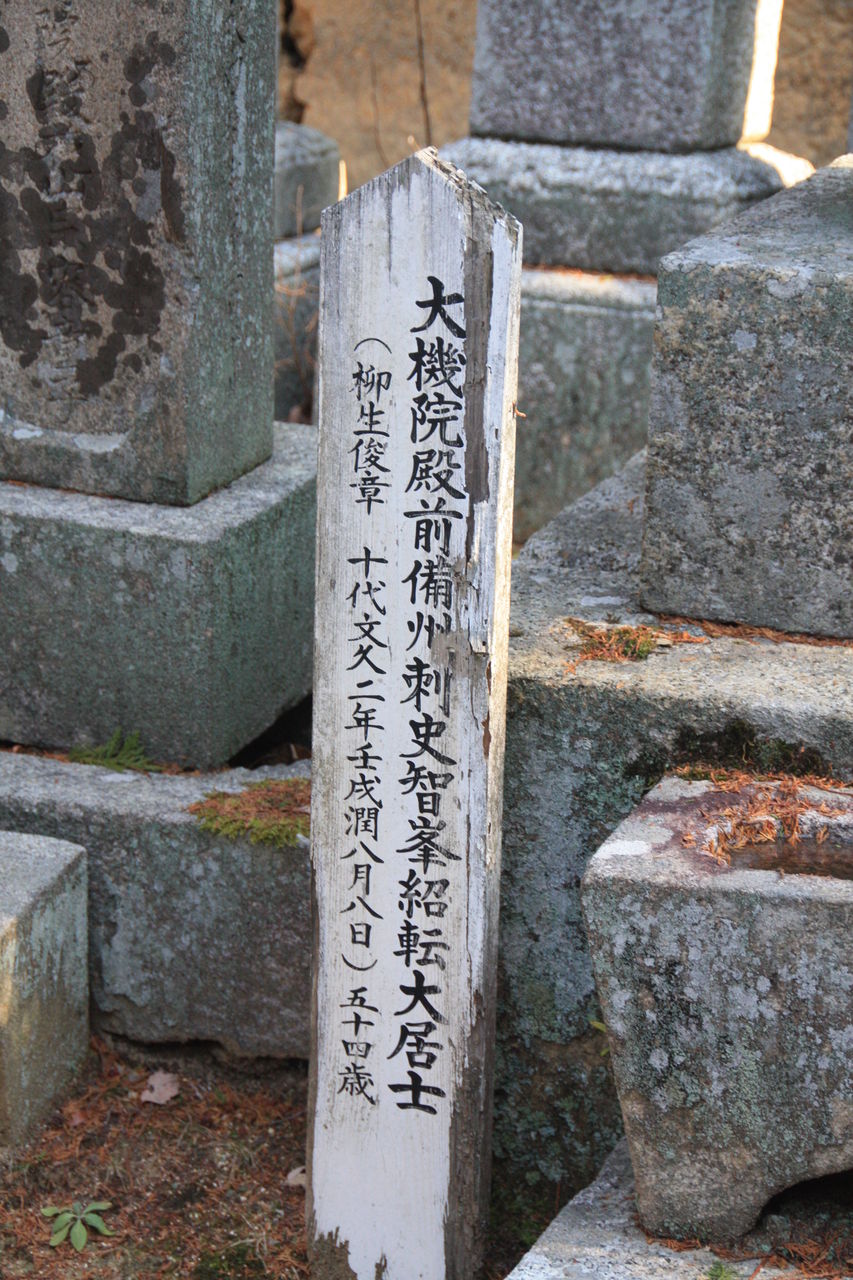 大機院殿前備州刺史智峯紹転大居士
(柳生俊章 十代文久二年壬戌潤八月八日)五十四歳